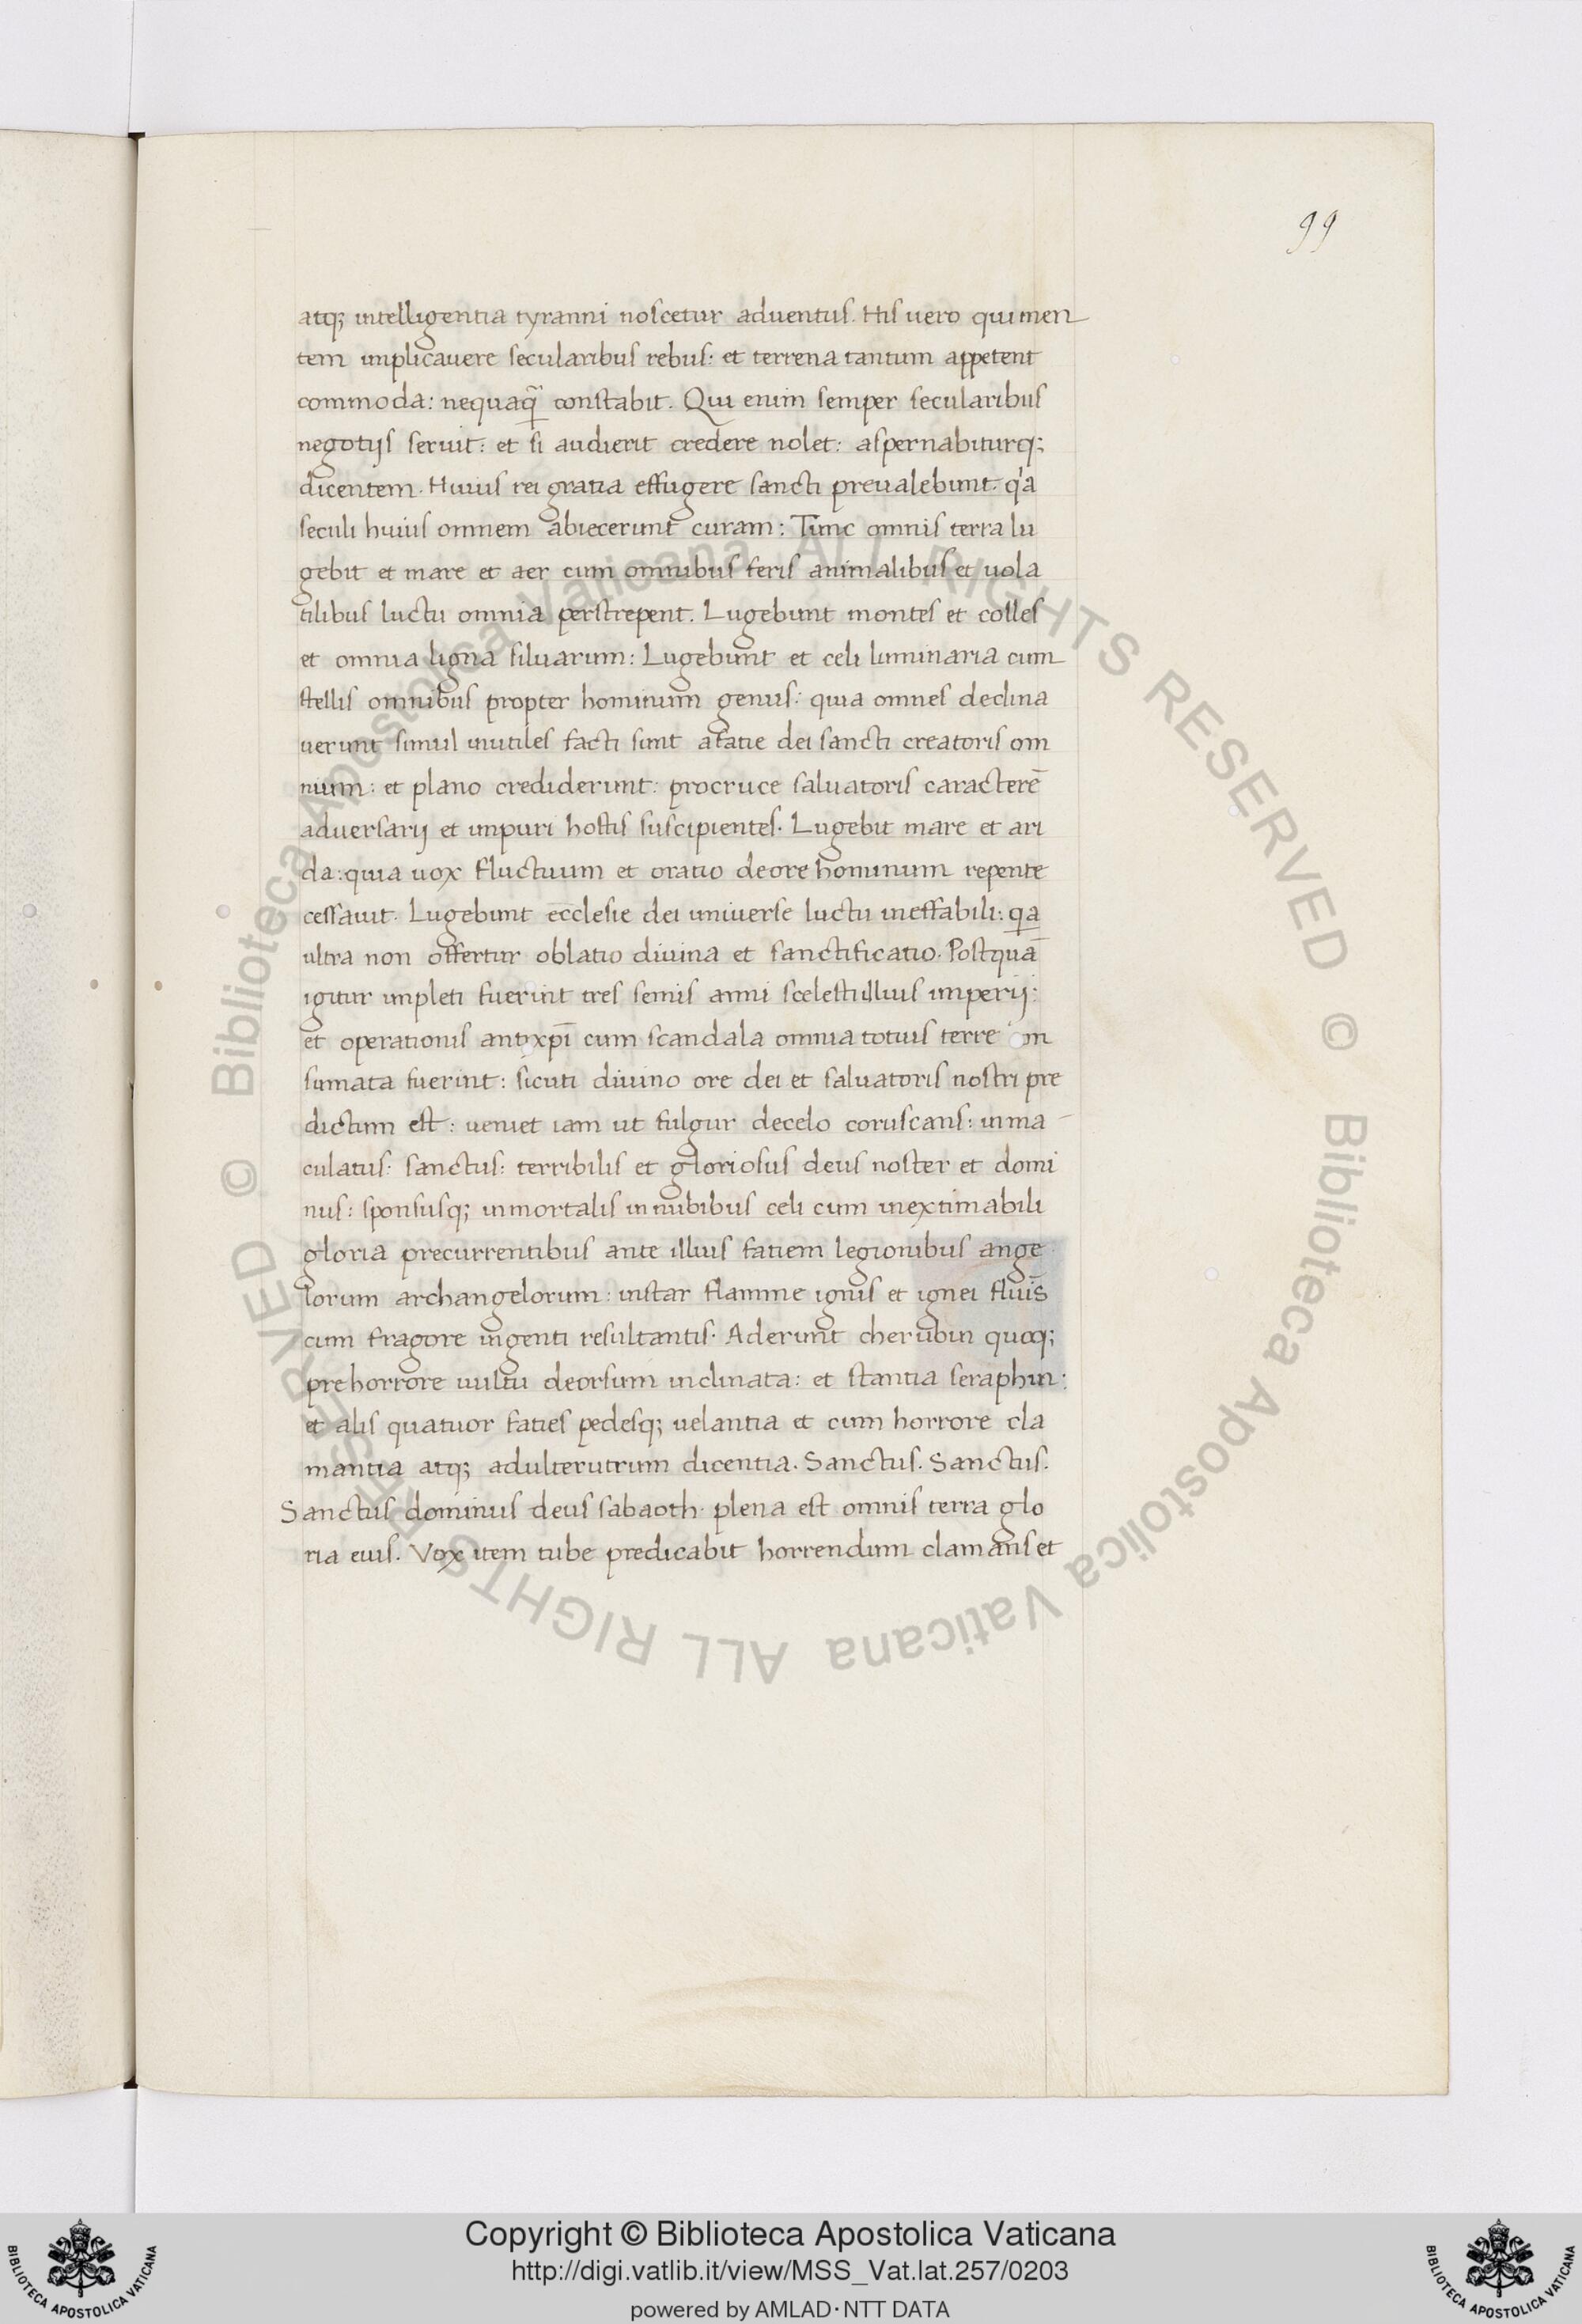 99
atq; intelligentia tyranni noscetur aduentus. His uero qui men
tem implicauere secularibus rebus: et terrena tantum appetent
commoda: nequaq̃ constabit. Qui enim semper secularibus
negotijs seruit: et si audierit credere nolet: aspernabiturq;
dicentem. Huius rei gratia effugere sancti preualebunt. qa
seculi huius omnem abiecerunt curam: Tunc omnis terra lu
gebit et mare et aer cum omnibus feris animalibus et uola
tilibus luctu omnia perstrepent. Lugebunt montes et colles
et omnia ligna siluarum: Lugebunt et celi luminaria cum
stellis omnibus propter hominum genus: quia omnes declina
uerunt simul inutiles facti sunt afatie dei sancti creatoris om
nium: et plano crediderunt: procruce saluatoris caracterē
aduersarij et impuri hostis suscipientes. Lugebit mare et ari
da: quia uox fluctuum et oratio deore hominum repente
cessauit. Lugebunt ecclesie dei uniuerse luctu ineffabili: qa
ultra non offertur oblatio diuina et sanctificatio. Postquā
igitur impleti fuerint tres semis anni scelesti illius imperij:
et operationis antixp̄i cum scandala omnia totius terre on
sumata fuerint: sicuti diuino ore dei et saluatoris nostri pre
dictum est: ueniet iam ut fulgur decelo coruscans: inma
culatus: sanctus: terribilis et gloriosus deus noster et domi
nus: sponsusq; inmortalis in nubibus celi cum inextimabili
gloria precurrentibus ante illius fatiem legionibus ange
lorum archangelorum: instar flamme ignis et ignei fluīs
cum fragore ingenti resultantis. Aderunt cherubin quoq;
prehorrore uultu deorsum inclinata: et stantia seraphin:
et alis quatuor faties pedesq; uelantia et cum horrore cla
mantia atq; adulterutrum dicentia. Sanctus. Sanctus.
Sanctus dominus deus sabaoth. plena est omnis terra glo
ria eius. Vox item tube predicabit horrendum clamans et
© Biblioteca Apostolica Vaticana ALL RIGHTS RESERVED © Biblioteca Apostolica Vaticana ALL RIGHTS RESERVED
Copyright © Biblioteca Apostolica Vaticana
http://digi.vatlib.it/view/MSS_Vat.lat.257/0203
powered by AMLAD·NTT DATA
BIBLIOTECA APOSTOLICA VATICANA
BIBLIOTECA APOSTOLICA VATICANA